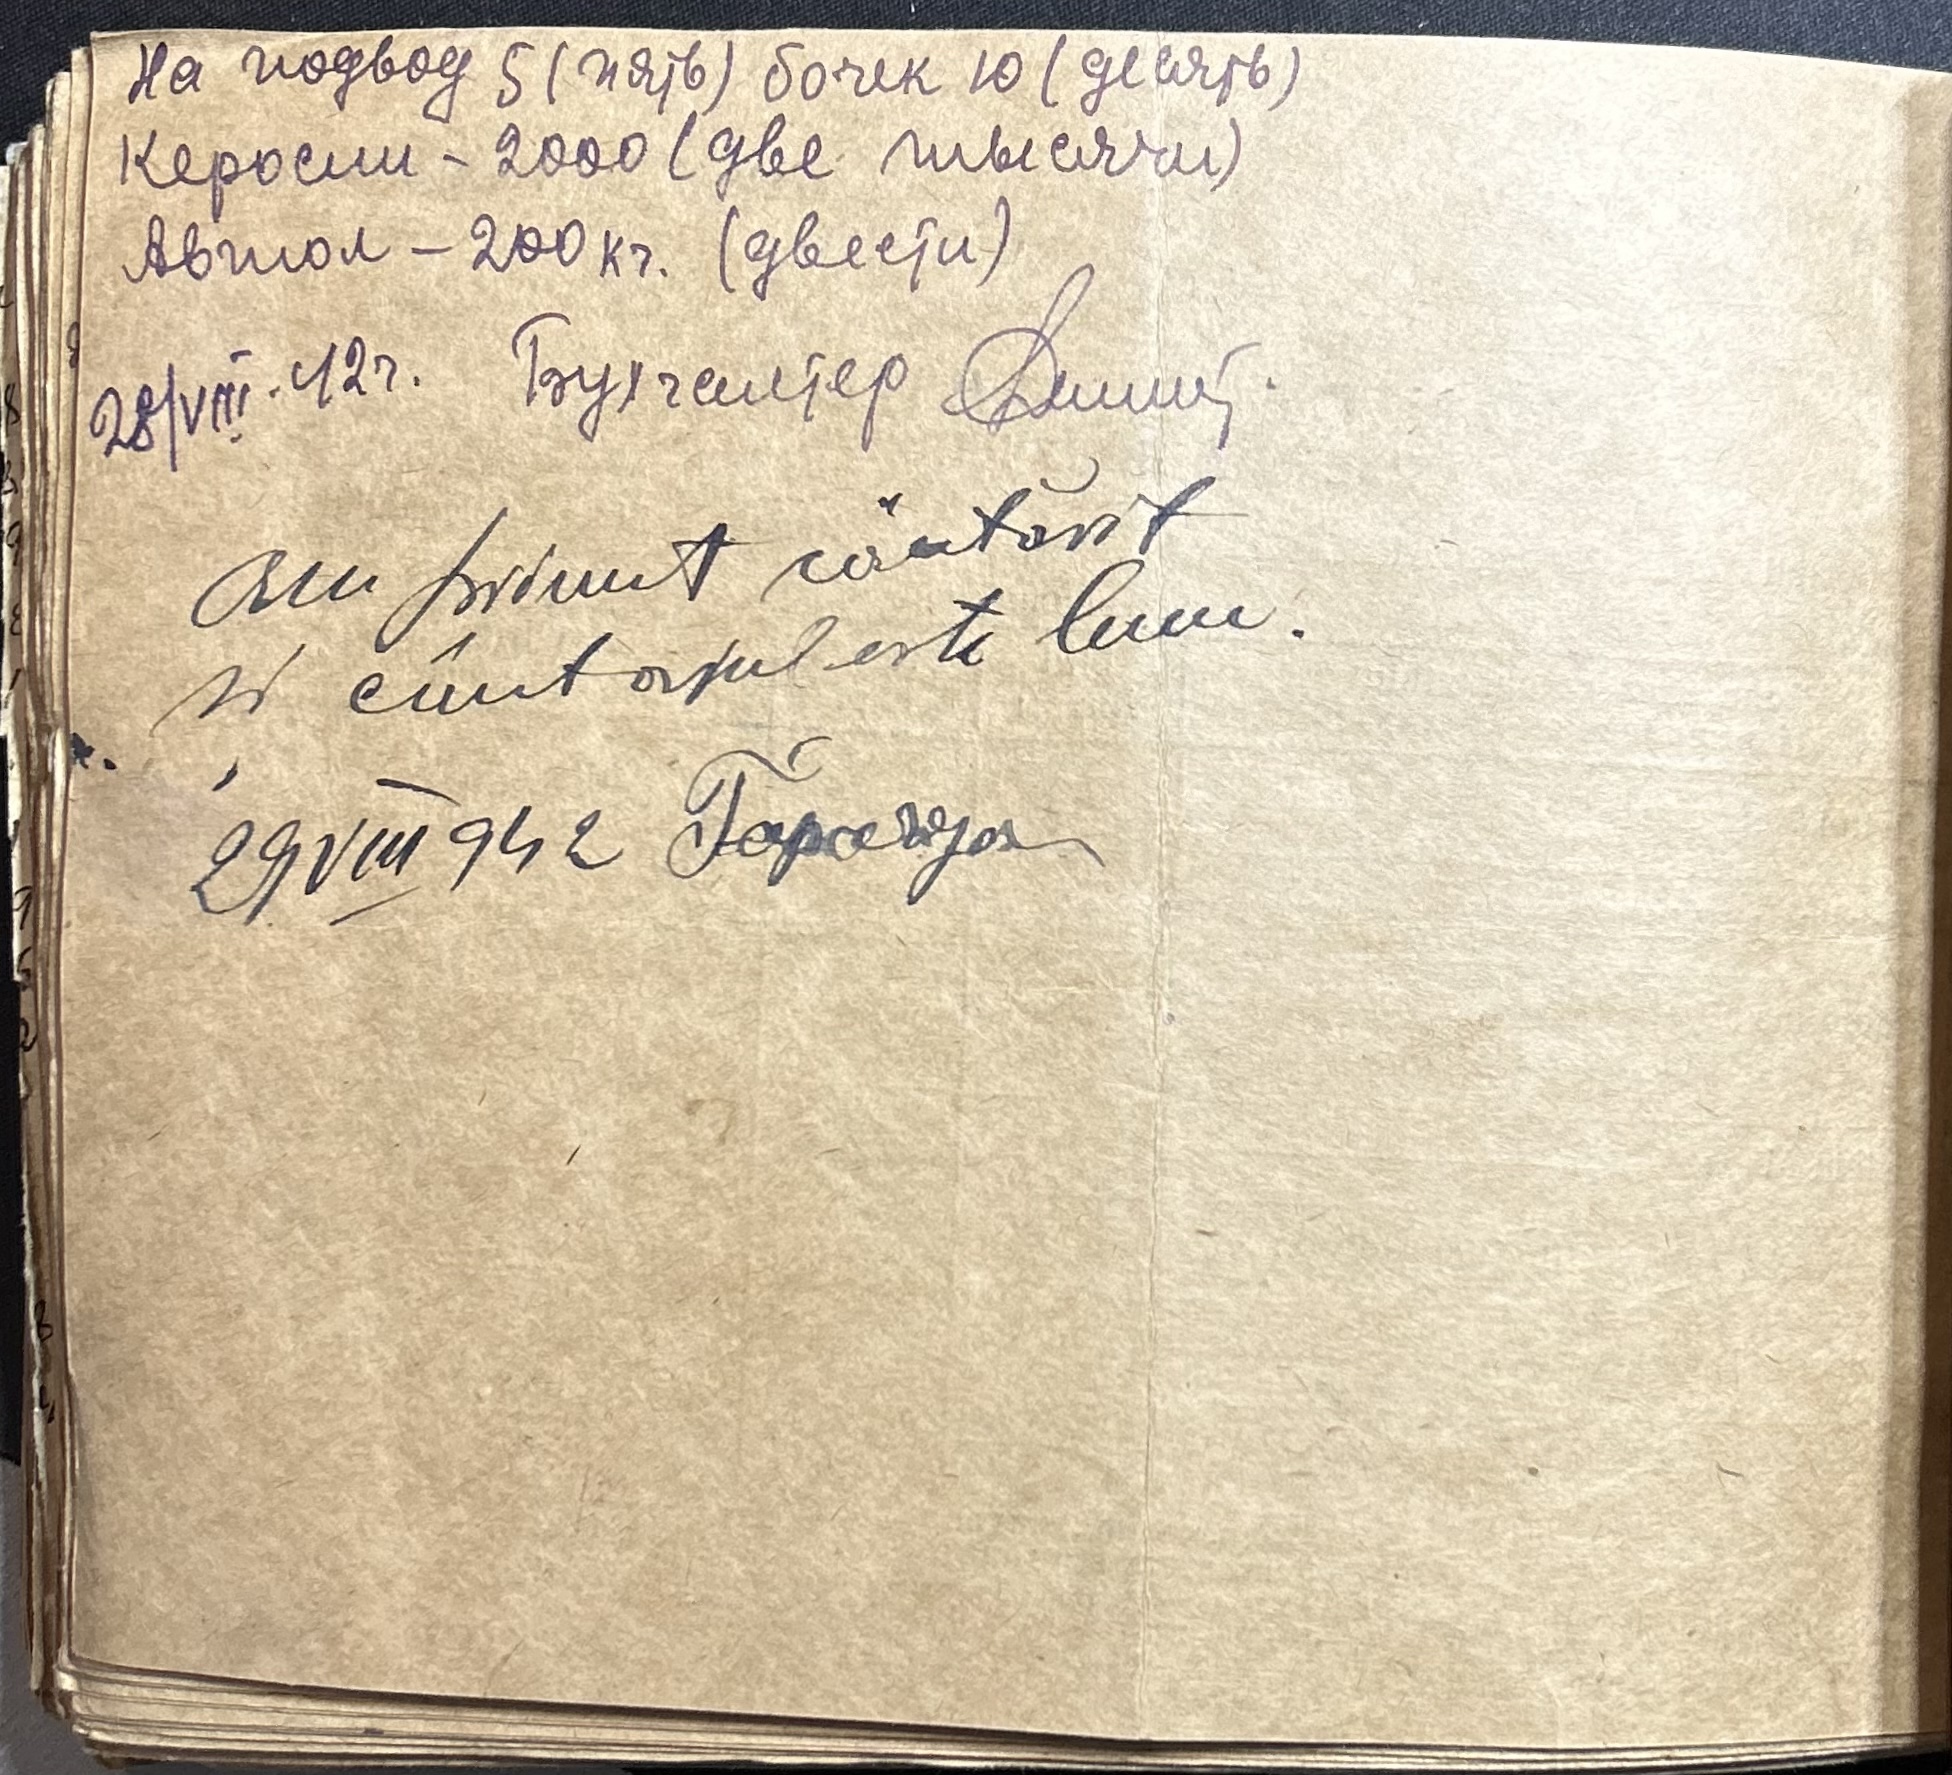 На подвод 5 (пять) бочек 10 (десять)
Керосин - 2000 (две тысячи)
Автол - 200 кг. (двести)
28/VIII-42г. Бухгалтер
Am primit cântărit
și cîntarul este bun.
29 VIII 942